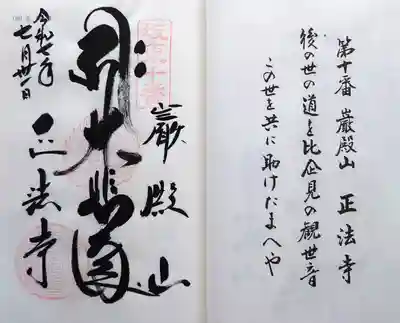 第十番 巌殿山 正法寺
後の世の道を比企見の観世音
この世を共に助けたまへや
坂東十番
巌殿山
大悲
正法寺
令和七年
七月卅一日